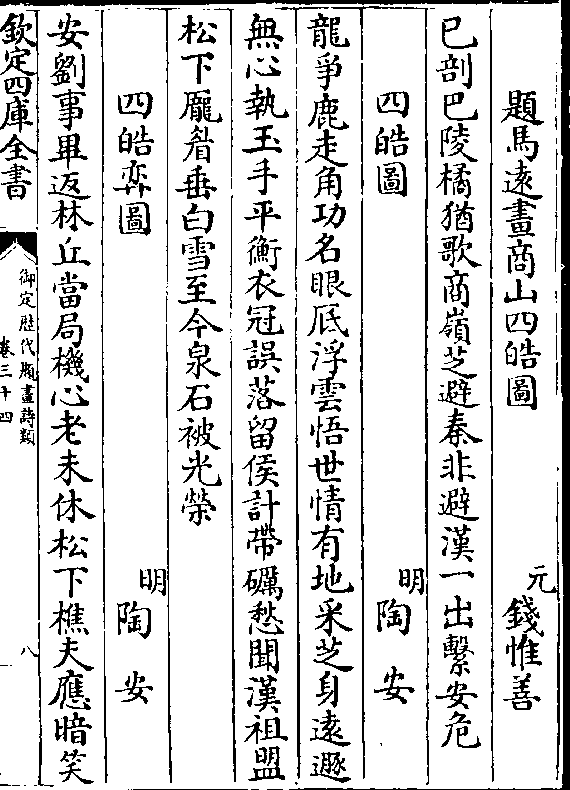 題馬遠畫商山四皓圖　元　錢惟善
已剖巴陵橘猶歌商嶺芝避秦非避漢一出繫安危
四皓圖　明　陶安
龍爭鹿走角功名眼底浮雲悟世情有地采芝身遠遯
無心執玉手平衡衣冠誤落留侯計帶礪愁聞漢祖盟
松下龎眉垂白雪至今泉石被光榮
四皓弈圖　明　陶安
安劉事畢返林丘當局機心老未休松下樵夫應暗笑
欽定四庫全書
御定歴代題畫詩類
卷三十四
八